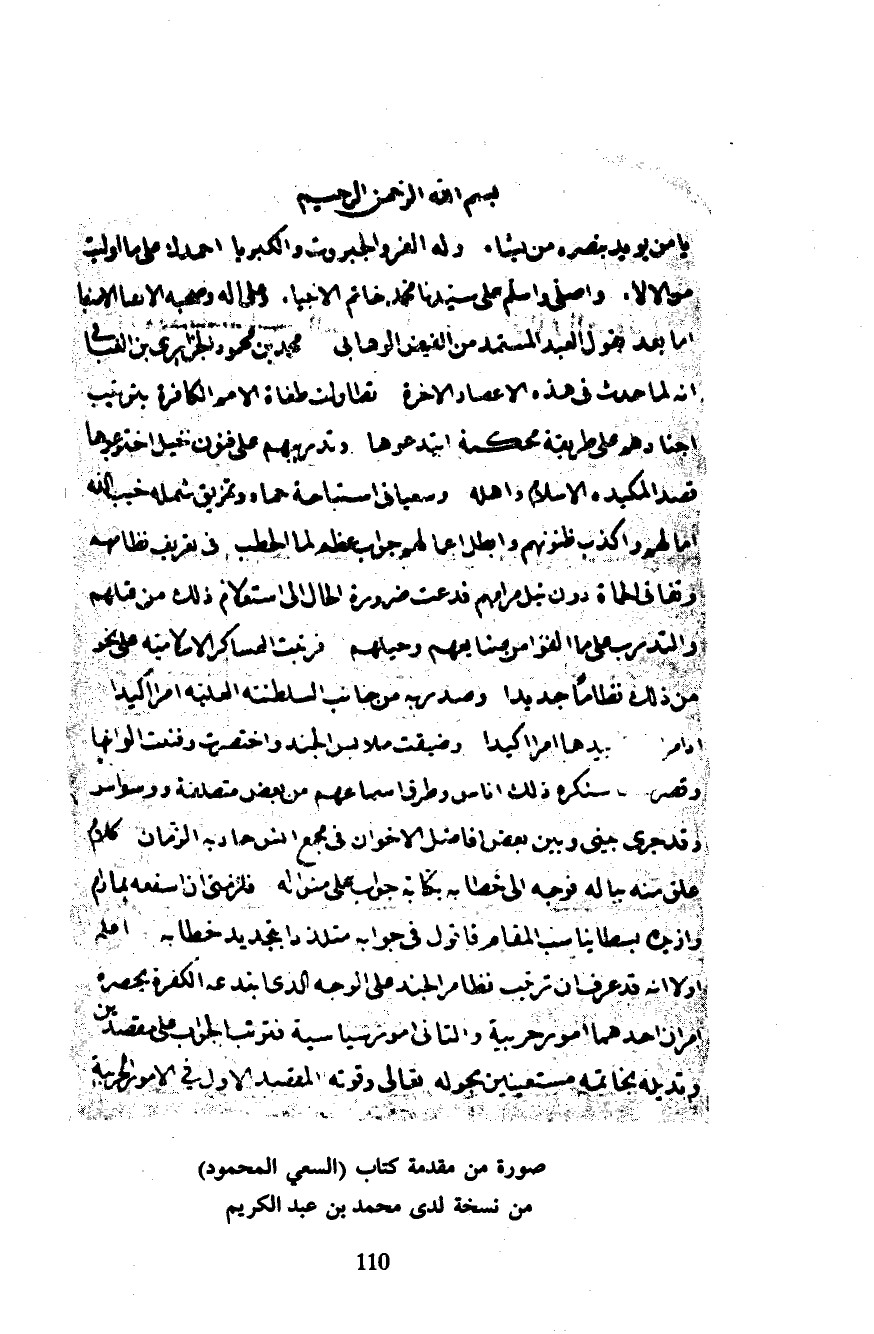 بسم الله الرحمن الرحيم
يا من يويد بنصره من يشاء. وله العز والجبروت والكبريا احمدك على ما اوليت
من الالاء. واصلي واسلم على سيدنا محمد خاتم الانبيا. وعلى اله وصحبه
اما بعد فيقول العبد المستمد من الفيض الوهابي محمد بن محمود الجزايري بن العنابي
انه لما حدث في هذه الاعصار الاخرة تطاولت طغاة الامم الكافرة بترتيب
اجنادهم على طريقة محكمة ابتدعوها وتدريبهم على فنون تخيل اخترعوها
قصد المكيدة الاسلام واهله وسعيا في استباحة حماه وتمزيق شمله خيب الله
امالهم واكذب ظنونهم وابطل اعمالهم عظم لما الخطب في نظامه
دون نيل مرامهم فدعت ضرورة الحال الى استعلام ذلك من قبلهم
والتدرب على ما الفوا من صنايعهم وحيلهم فرتبت العساكر الاسلامية على نحو
من ذلك نظاما جديدا وصدر به من جانب السلطنة العلية امرا اكيدا
بيدها امرا اكيدا وضيقت ملابس الجند واختصرت وفننت الوانها
وقصر ستنكره ذلك اناس وطرق اسماعهم من بعض متصلفة ووسواس
وقد جرى بيني وبين بعض افاضل الاخوان في مجمع انس جاد به الزمان كلام
علق منه بباله فوجه الى خطابه بكتابة جواب على منواله فلزمني ان اسعفه بمارام
وازيده بسطا يناسب المقام فاقول في جوابه متلذذا بتجديد خطابه اعلم
اولا انه قد عرف ان ترتيب نظام الجند على الوجه الذي ابتدعه الكفرة يحصره
امران احدهما امور حربية والثاني امور سياسية فترتب الجواب على مقصدين
وتذيله بخاتمه مستعينين بحوله تعالى وقوته المقصد الاول في الامور الحربية
صورة من مقدمة كتاب (السعي المحمود)
من نسخة لدى محمد بن عبد الكريم
110